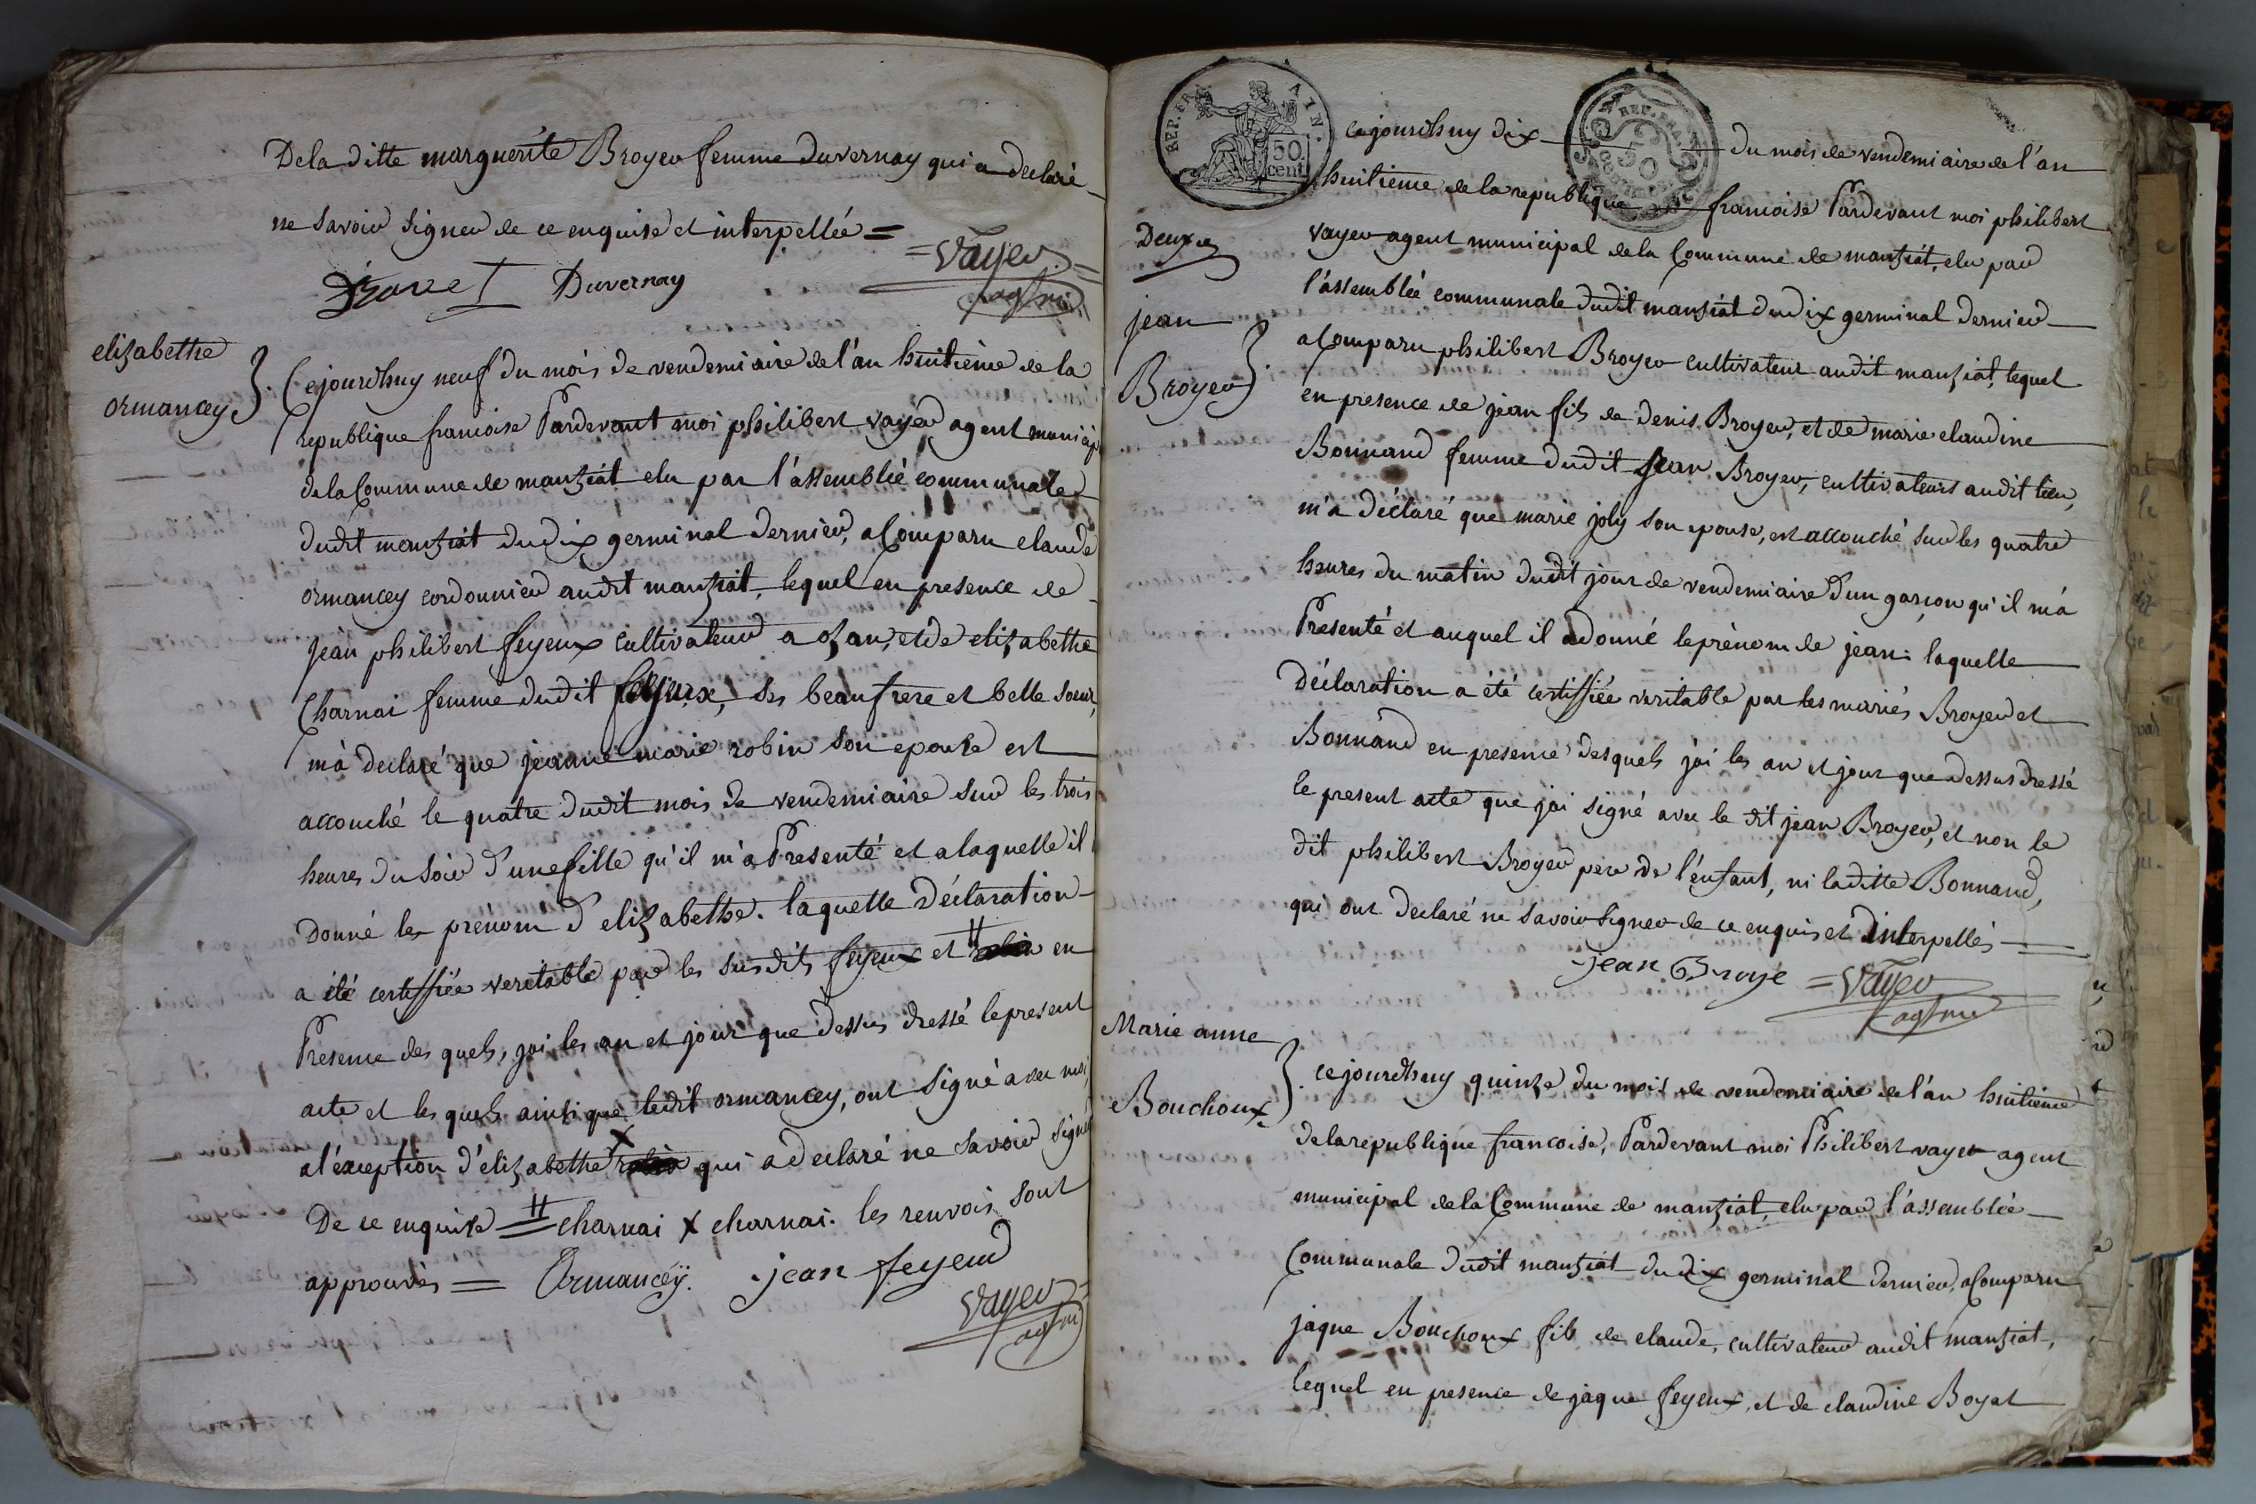 De la ditte marguerite Broyer femme duvernay qui a declaré
ne savoir signer de ce enquise et interpellée =
Duvernay
= Vayer =
agt mu
elizabethe
ormancey
Cejourdhuy neuf du mois de vendemiaire de l'an huitième de la
republique francoise Pardevant moi philibert vayer agent municip
de la Commune de manziat elu par l'assemblée communale
dudit manziat du dix germinal dernier, a Comparu claude
ormancey cordonnier audit manziat, lequel en presence de
jean philibert feyeux cultivateur a ozan, et de elizabethe
Charnai femme dudit feyeux, ses beaufrere et belle soeur,
m'à declaré que jeanne marie robin son epouse est
accouché le quatre dudit mois de vendemiaire sur les trois
heures du soir d'une fille qu'il m'a Presenté et a laquelle il
donné les prénom d'elizabethe. laquelle déclaration
a été certiffiée veritable par les susdits feyeux et # robin en
Presence des quels, jai les an et jour que dessus dressé le present
acte et les quels ainsi que ledit ormancey, ont signé avec moi,
a l'exception d'élizabethe x robin qui a declaré ne savoir signé
De ce enquise # charnai x charnai. les renvois sont
approuvés = Ormanceÿ. jean feyeux
Vayer
agt mu
REP. FRA
AIN.
50
cent.
REP. FRA
50
cejourdhuy dix du mois de vendemiaire de l'an
huitieme de la republique francoise Pardevant moi philibert
vayer agent municipal de la Commune de manziat, elu par
l'assemblée communale dudit manziat du dix germinal dernier
a Comparu philibert Broyer cultivateur audit manziat, lequel
en presence de jean fils de denis Broyer, et de marie claudine
Bonnand femme dudit jean Broyer, cultivateurs audit lieu,
m'a déclaré que marie joly son epouse, est accouché sur les quatre
heures du matin dudit jour de vendemiaire d'un garçon qu'il m'a
Presenté et auquel il a donné le prénom de jean: laquelle
Déclaration a été certiffiée veritable par les mariés Broyer et
Bonnand en presence desquels j'ai les an et jour que dessus dressé
le present acte que j'ai signé avec le dit jean Broyer, et non le
dit philibert Broyer pere de l'enfant, ni laditte Bonnand,
qui ont declaré ne savoir signer de ce enquis et interpellés
jean Broye = Vayer
agt mu
Deux
jean
Broyer
Marie anne
Bouchoux
cejourdhuy quinze du mois de vendemiaire de l'an huitieme
de la republique francoise, Pardevant moi Philibert vayer agent
municipal de la Commune de manziat, elu par l'assemblée
Communale dudit manziat du dix germinal dernier, a Comparu
jaque Bouchoux fils de claude, cultivateur audit manziat,
lequel en presence de jaque feyeux, et de claudine Boyat